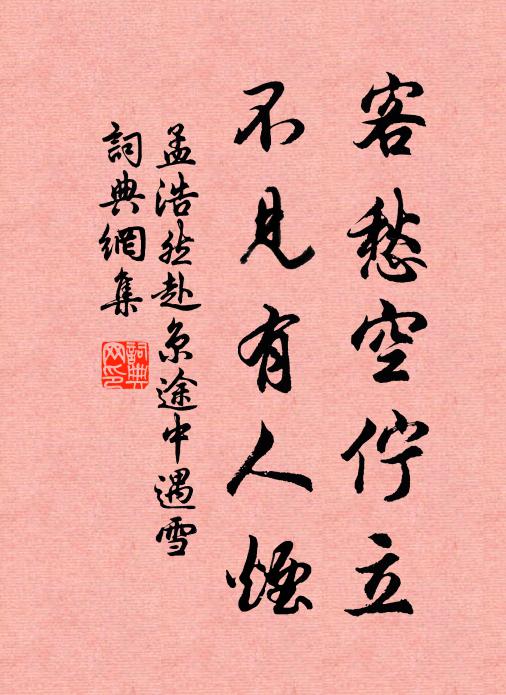 客愁空佇立
不見有人煙
孟浩然赴京途中遇雪
詞典網集
詞典網印